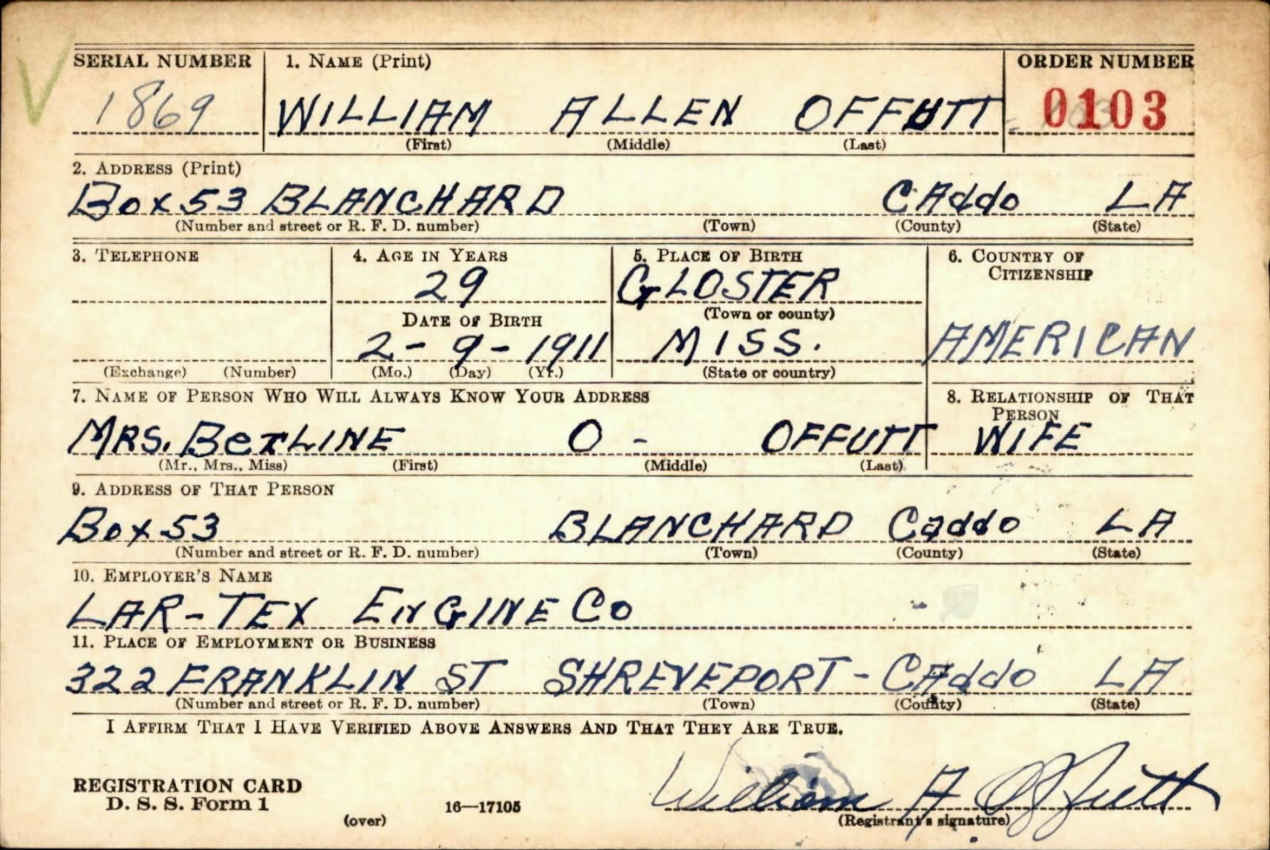 SERIAL NUMBER 1. NAME (Print) ORDER NUMBER
1869 WILLIAM ALLEN OFFUTT 0103
(First) (Middle) (Last)
2. ADDRESS (Print)
Box 53 BLANCHARD CAddo LA
(Number and street or R. F. D. number) (Town) (County) (State)
3. TELEPHONE 4. AGE IN YEARS 5. PLACE OF BIRTH 6. COUNTRY OF
CITIZENSHIP
29 GLOSTER
(Town or county)
DATE OF BIRTH
2-9-1911 MISS. AMERICAN
(Exchange) (Number) (Mo.) (Day) (Yr.) (State or country)
7. NAME OF PERSON WHO WILL ALWAYS KNOW YOUR ADDRESS 8. RELATIONSHIP OF THAT
PERSON
MRS. BerLINE O - OFFUTT WIFE
(Mr., Mrs., Miss) (First) (Middle) (Last)
9. ADDRESS OF THAT PERSON
Box 53 BLANCHARD Caddo LA
(Number and street or R. F. D. number) (Town) (County) (State)
10. EMPLOYER'S NAME
LAR-TEX EnGINE Co
11. PLACE OF EMPLOYMENT OR BUSINESS
322 FRANKLIN ST SHREVEPORT - CAddo LA
(Number and street or R. F. D. number) (Town) (County) (State)
I AFFIRM THAT I HAVE VERIFIED ABOVE ANSWERS AND THAT THEY ARE TRUE.
REGISTRATION CARD
D. S. S. Form 1 16—17105 William A Offutt
(over) (Registrant's signature)